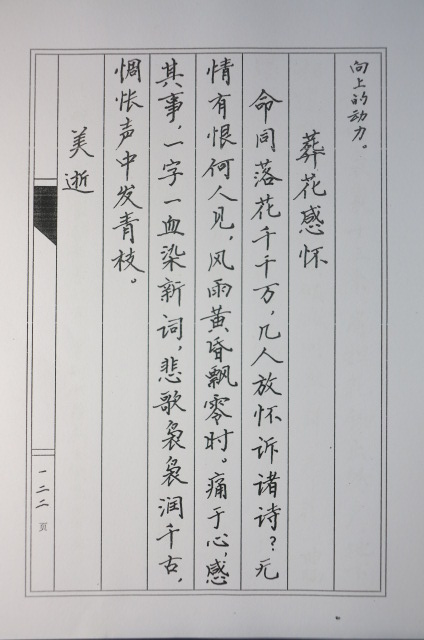 向上的动力。
葬花感怀
命同落花千千万，几人放怀诉诸诗？无
情有恨何人见，风雨黄昏飘零时。痛于心，感
其事，一字一血染新词，悲歌袅袅润千古，
惆怅声中发青枝。
美逝
一二二页